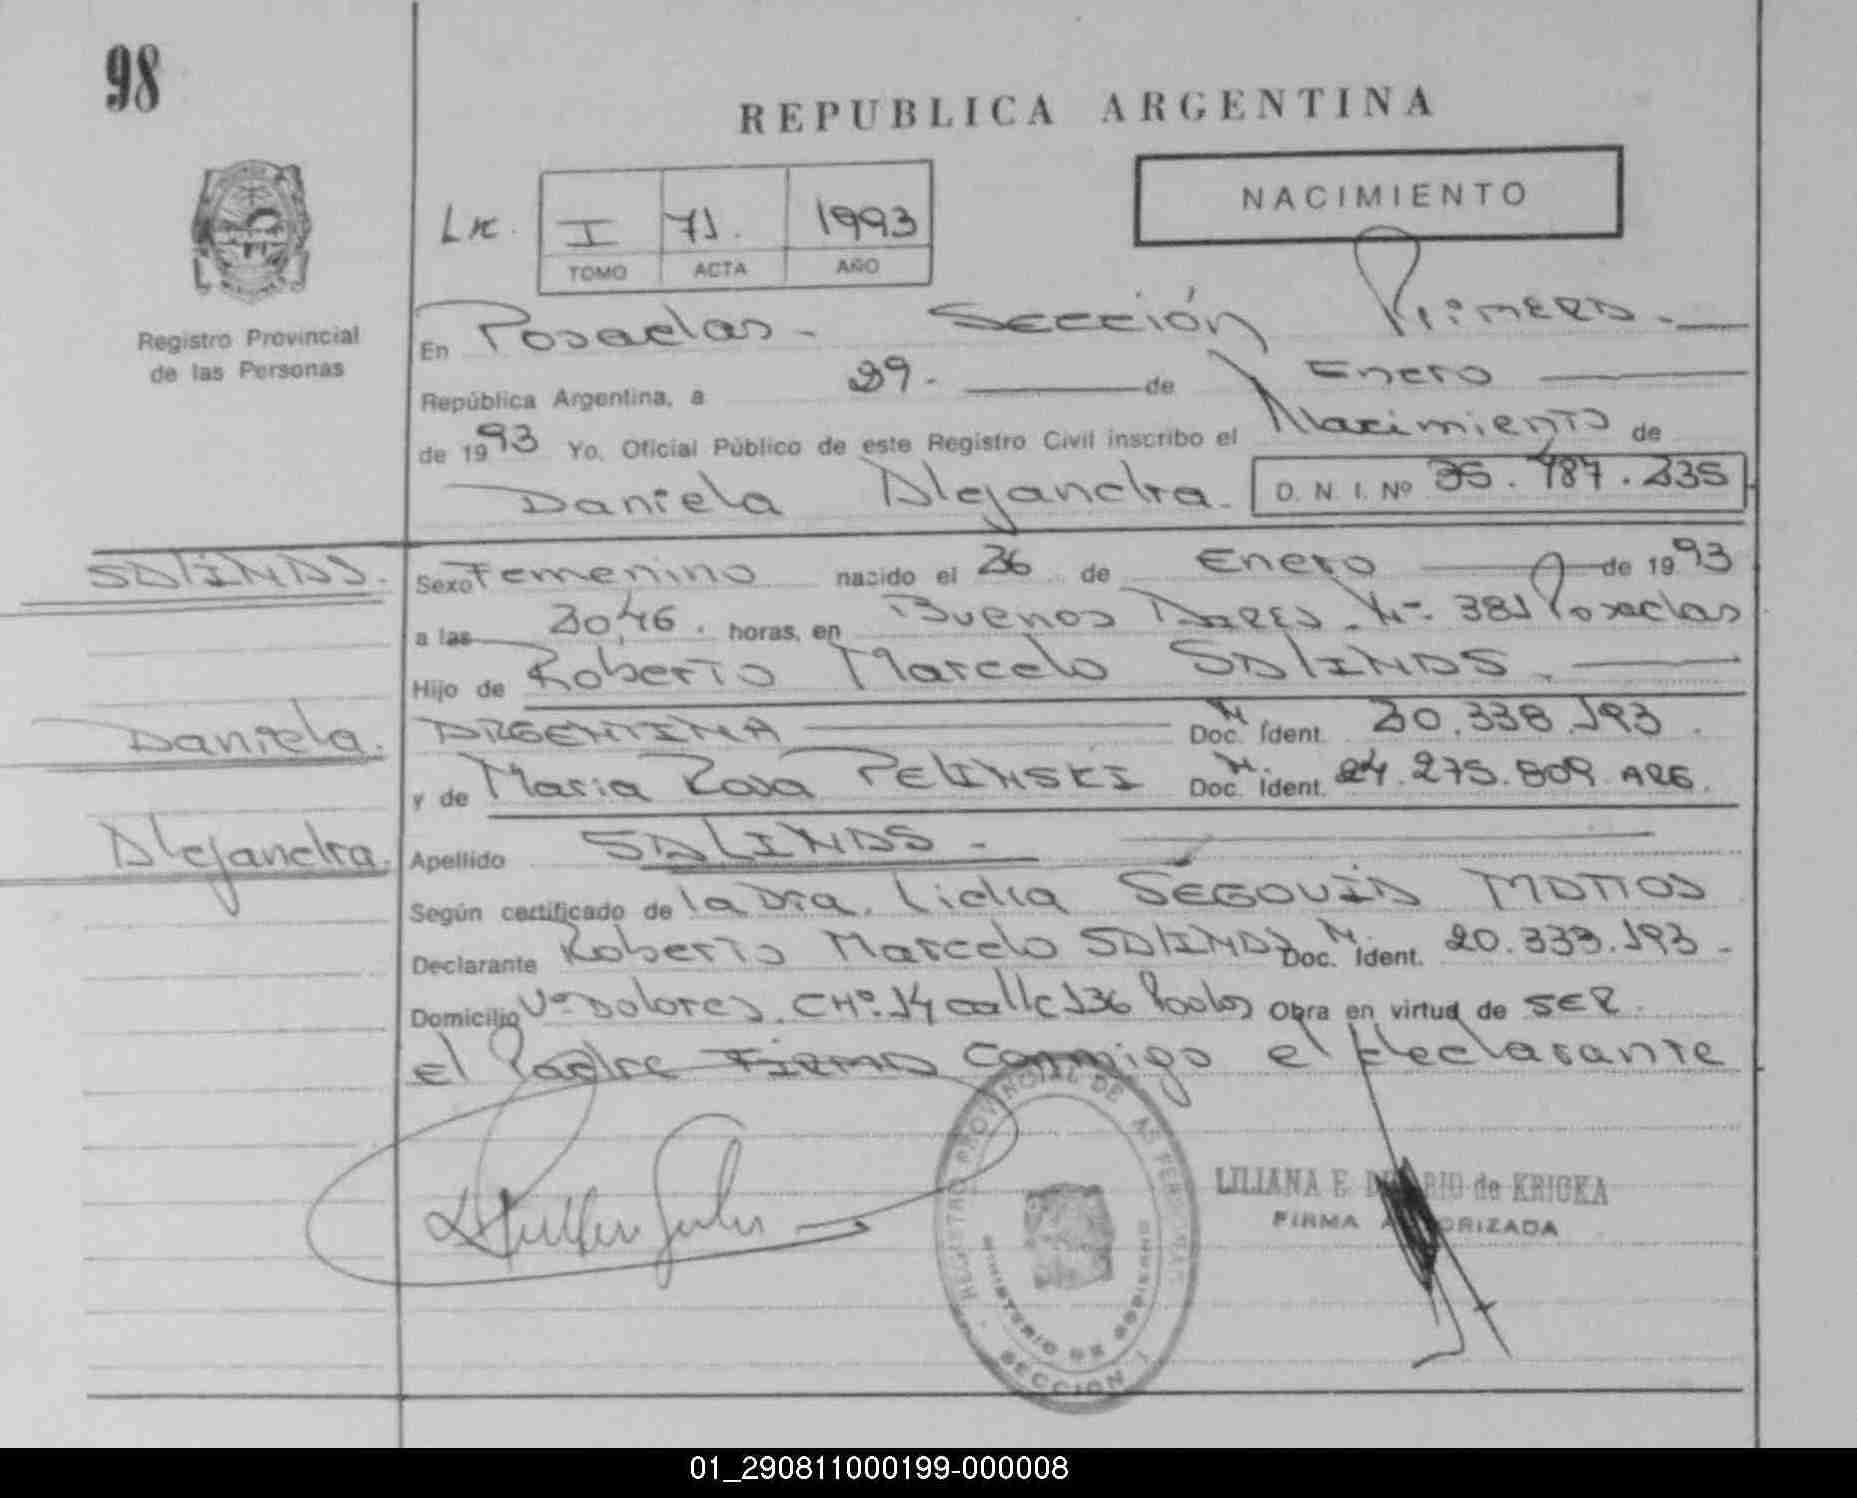 98
REPUBLICA ARGENTINA
NACIMIENTO
I 71. 1993
TOMO ACTA AÑO
Registro Provincial
de las Personas
En Posadas - Sección Primera.
República Argentina, a 29. de Enero
de 1993 Yo, Oficial Público de este Registro Civil inscribo el Nacimiento de
Daniela Alejandra. D. N. I. Nº 35.487.235
SALINAS.
Daniela.
Alejandra.
Sexo Femenino nacido el 26 de Enero de 1993
a las 20,46. horas, en Buenos Aires Nº 381 Posadas
Hijo de Roberto Marcelo SALINAS.
ARGENTINA Doc. Ident. 20.338.193.
y de Maria Rosa PELINSKI Doc. Ident. 24.275.809 ARG.
Apellido SALINAS -
Según certificado de la Dra. Lidia SEGOVIA
Declarante Roberto Marcelo SALINAS Doc. Ident. 20.333.193 -
Domicilio Vª Dolores. CHº 14 calle 136 Pdas Obra en virtud de SER
el Padre FIRMA conmigo el declarante
REGISTRO PROVINCIAL DE LAS PERSONAS
MINISTERIO DE GOBIERNO
SECCION 1
LILIANA E. de KRICKA
FIRMA AUTORIZADA
01_290811000199-000008